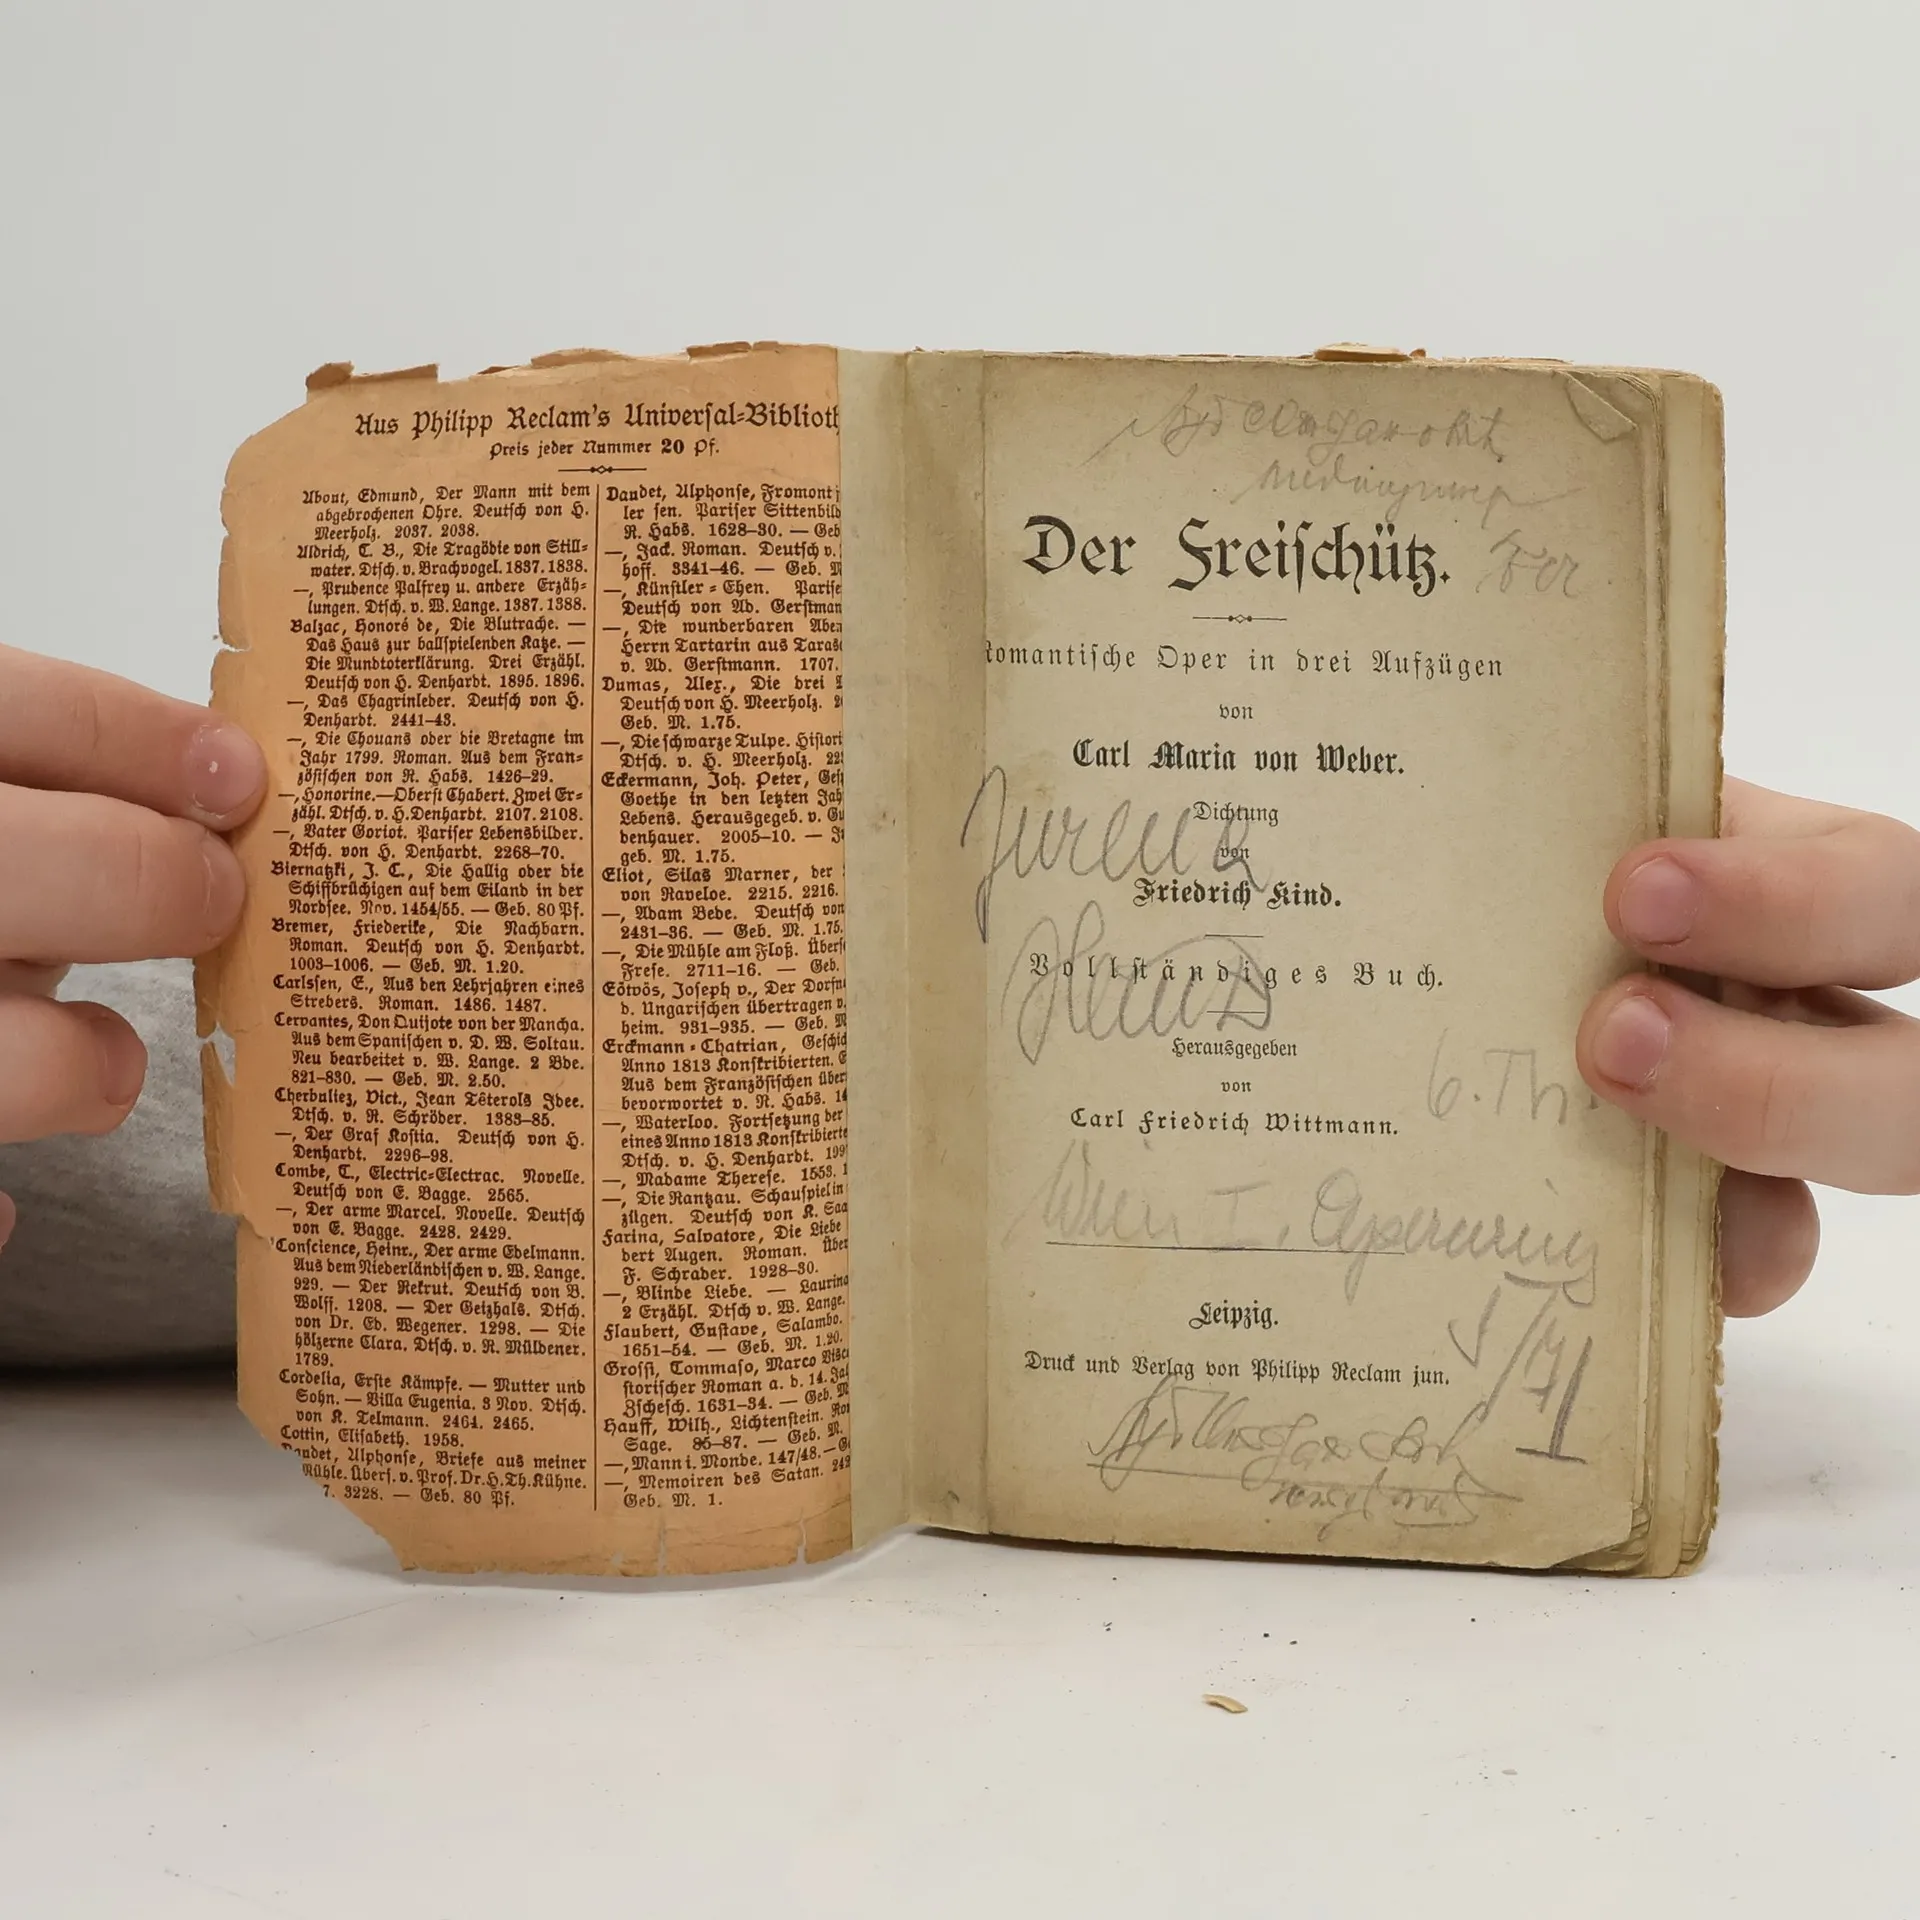 Aus Philipp Reclam's Universal=Biblioth
Preis jeder Nummer 20 Pf.
About, Edmund, Der Mann mit dem
abgebrochenen Ohre. Deutsch von H.
Meerholz. 2037. 2038.
Aldrich, T. B., Die Tragödie von Still=
water. Dtsch. v. Brachvogel. 1837. 1838.
—, Prudence Palfrey u. andere Erzäh=
lungen. Dtsch. v. W. Lange. 1387. 1388.
Balzac, Honoré de, Die Blutrache. —
Das Haus zur ballspielenden Katze. —
Die Mundtoterklärung. Drei Erzähl.
Deutsch von H. Denhardt. 1895. 1896.
—, Das Chagrinleder. Deutsch von H.
Denhardt. 2441–43.
—, Die Chouans oder die Bretagne im
Jahr 1799. Roman. Aus dem Fran=
zösischen von R. Habs. 1426–29.
—, Honorine.—Oberst Chabert. Zwei Er=
zähl. Dtsch. v. H. Denhardt. 2107. 2108.
—, Vater Goriot. Pariser Lebensbilder.
Dtsch. von H. Denhardt. 2268–70.
Biernatzki, J. C., Die Hallig oder die
Schiffbrüchigen auf dem Eiland in der
Nordsee. Nov. 1454/55. — Geb. 80 Pf.
Bremer, Friederike, Die Nachbarn.
Roman. Deutsch von H. Denhardt.
1003–1006. — Geb. M. 1.20.
Carlssen, E., Aus den Lehrjahren eines
Strebers. Roman. 1486. 1487.
Cervantes, Don Quijote von der Mancha.
Aus dem Spanischen v. D. W. Soltau.
Neu bearbeitet v. W. Lange. 2 Bde.
821–830. — Geb. M. 2.50.
Cherbuliez, Vict., Jean Têterols Idee.
Dtsch. v. R. Schröder. 1383–85.
—, Der Graf Kostia. Deutsch von H.
Denhardt. 2296–98.
Combe, T., Electric=Electrac. Novelle.
Deutsch von E. Bagge. 2565.
—, Der arme Marcel. Novelle. Deutsch
von E. Bagge. 2428. 2429.
Conscience, Heinr., Der arme Edelmann.
Aus dem Niederländischen v. W. Lange.
929. — Der Rekrut. Deutsch von B.
Wolff. 1208. — Der Geizhals. Dtsch.
von Dr. Ed. Wegener. 1298. — Die
hölzerne Clara. Dtsch. v. R. Müldener.
1789.
Cordelia, Erste Kämpfe. — Mutter und
Sohn. — Villa Eugenia. 3 Nov. Dtsch.
von K. Telmann. 2464. 2465.
Cottin, Elisabeth. 1958.
Daudet, Alphonse, Briefe aus meiner
Mühle. Übers. v. Prof. Dr. H. Th. Kühne.
7. 3228. — Geb. 80 Pf.
Daudet, Alphonse, Fromont j
ler sen. Pariser Sittenbild
R. Habs. 1628–30. — Geb
—, Jack. Roman. Deutsch v.
hoff. 3341–46. — Geb. M
—, Künstler = Ehen. Parise
Deutsch von Ad. Gerstman
—, Die wunderbaren Aben
Herrn Tartarin aus Taras
v. Ad. Gerstmann. 1707.
Dumas, Alex., Die drei
Deutsch von H. Meerholz. 2
Geb. M. 1.75.
—, Die schwarze Tulpe. Histori
Dtsch. v. H. Meerholz. 22
Eckermann, Joh. Peter, Ges
Goethe in den letzten Jah
Lebens. Herausgegeb. v. Gu
denhauer. 2005–10. — J
geb. M. 1.75.
Eliot, Silas Marner, der
von Raveloe. 2215. 2216.
—, Adam Bede. Deutsch von
2431–36. — Geb. M. 1.75.
—, Die Mühle am Floß. Übers
Frese. 2711–16. — Geb.
Eötvös, Joseph v., Der Dorfn
d. Ungarischen übertragen v.
heim. 931–935. — Geb. M
Erckmann = Chatrian, Geschic
Anno 1813 Konskribierten. E
Aus dem Französischen über
bevorwortet v. R. Habs. 14
—, Waterloo. Fortsetzung der
eines Anno 1813 Konskribierte
Dtsch. v. H. Denhardt. 199
—, Madame Therese. 1553. 1
—, Die Rantzau. Schauspiel in
zügen. Deutsch von K. Saa
Farina, Salvatore, Die Liebe
bert Augen. Roman. Über
F. Schrader. 1928–30.
—, Blinde Liebe. — Laurina
2 Erzähl. Dtsch v. W. Lange.
Flaubert, Gustave, Salambo.
1651–54. — Geb. M. 1.20.
Grossi, Tommaso, Marco Visc
storischer Roman a. d. 14. Ja
Zschesch. 1631–34. — Geb. M
Hauff, Wilh., Lichtenstein. Ro
Sage. 85–87. — Geb. M.
—, Mann i. Monde. 147/48. — G
—, Memoiren des Satan. 242
Geb. M. 1.
Der Freischütz.
Romantische Oper in drei Aufzügen
von
Carl Maria von Weber.
Dichtung
von
Friedrich Kind.
Vollständiges Buch.
Herausgegeben
von
Carl Friedrich Wittmann.
6. Th.
Wien I. Operuring
Leipzig.
Druck und Verlag von Philipp Reclam jun.